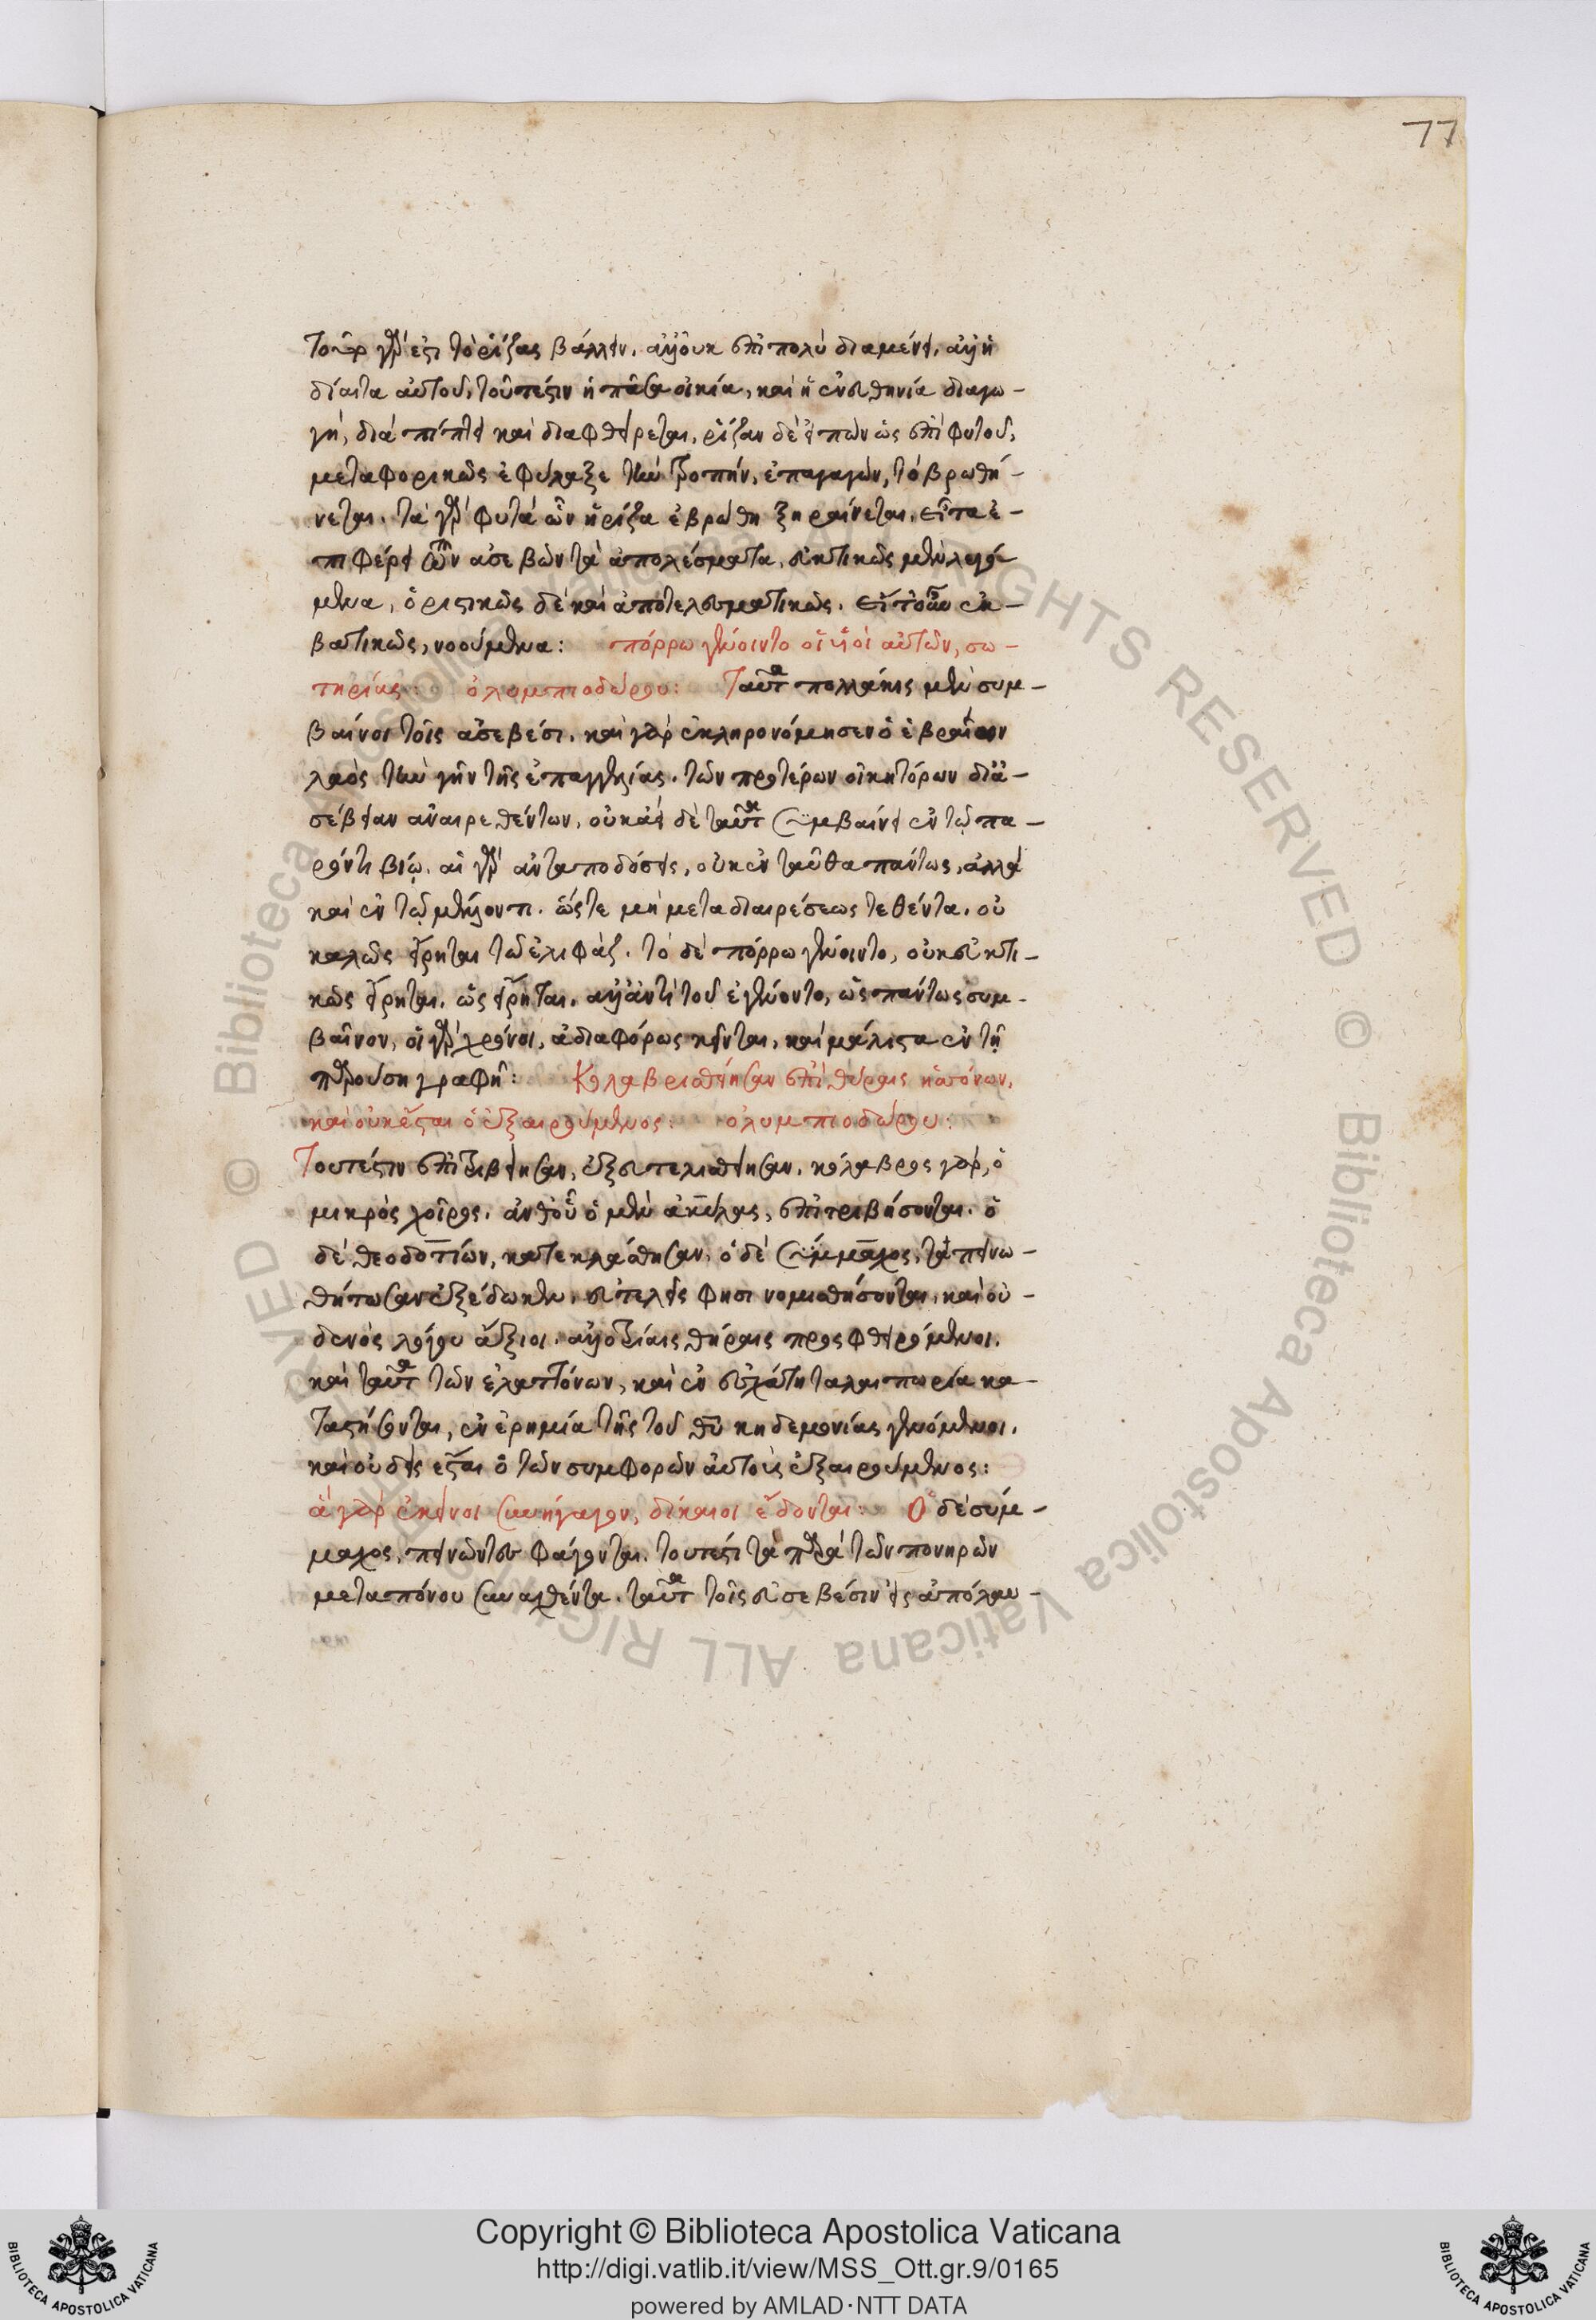 77
τοῦτο γάρ ἐστι τὸ ῥίζας βάλλειν. ἀλλ' οὐκ ἐπιπολὺ διαμένει. ἀλλ' ἡ
δίαιτα αὐτοῦ, τουτέστιν ἡ πᾶσα οἰκία, καὶ ἡ εὐσθηνία διαγω-
γή, διαπίπτει καὶ διαφθείρεται. ῥίζαν δὲ εἰπὼν ὡς ἐπὶ φυτοῦ,
μεταφορικῶς ἐφύλαξε τὴν τροπήν, ἐπαγαγὼν, τὸ βρωθή-
σεται. τὰ γὰρ φυτὰ ὧν ἡ ῥίζα ἐβρώθη ξηραίνεται. εἶτα ἐ-
πιφέρει τῶν ἀσεβῶν τὰ ἀπολέσματα, εὐκτικῶς μὲν λεγό-
μενα, ὁριστικῶς δὲ καὶ ἀποτελεσματικῶς. εἴτουν ἐκ-
βατικῶς, νοούμενα: πόρρω γένοιντο οἱ υἱοὶ αὐτῶν, σω-
τηρίας: ὀλυμπιοδώρου: Ταῦτα πολλάκις μὲν συμ-
βαίνοι τοῖς ἀσεβέσι. καὶ γὰρ ἐκληρονόμησεν ὁ ἑβραίων
λαὸς τὴν γῆν τῆς ἐπαγγελίας. τῶν προτέρων οἰκητόρων δι' ἀ-
σέβειαν ἀναιρεθέντων, οὐκ ἀεὶ δὲ ταῦτα συμβαίνει ἐν τῷ πα-
ρόντι βίῳ. αἱ γὰρ ἀνταποδόσεις, οὐκ ἐνταῦθα πάντως, ἀλλὰ
καὶ ἐν τῷ μέλλοντι. ὥστε μὴ μετὰ διαιρέσεως τεθέντα. οὐ
καλῶς εἴρηται τῷ ἐλιφάζ. τὸ δὲ πόρρω γένοιντο, οὐκ εὐκτι-
κῶς εἴρηται. ὡς εἴρηται. ἀλλ' ἀντὶ τοῦ ἐγένοντο, ὡς πάντως συμ-
βαῖνον, οἱ γὰρ χρόνοι, ἀδιαφόρως κεῖνται, καὶ μάλιστα ἐν τῇ
παρούσῃ γραφῇ: Κολαβρισθείησαν ἐπὶ θύραις ἡσσόνων,
καὶ οὐκ ἔσται ὁ ἐξαιρούμενος: ὀλυμπιοδώρου:
Τουτέστιν ἐπιτριβείησαν, ἐξευτελισθείησαν. κόλαβρος γὰρ, ὁ
μικρὸς χοῖρος. ἀνθ' οὗ ὁ μὲν ἀκύλας, ἐπιτριβήσονται. ὁ
δὲ θεοδοτίων, κατεκλάσθησαν. ὁ δὲ σύμμαχος, ταπεινω-
θήτωσαν ἐξέδωκεν. εὐτελεῖς φησι νομισθήσονται, καὶ οὐ-
δενὸς λόγου ἄξιοι. ἀλλοτρίαις θύραις προσφθειρόμενοι.
καὶ ταῦτα τῶν ἐλαττόνων, καὶ ἐν ἐσχάτῃ ταλαιπωρίᾳ κα-
ταστήσονται, ἐν ἐρημίᾳ τῆς τοῦ θυ κηδεμονίας γενόμενοι.
καὶ οὐδεὶς ἔσται ὁ τῶν συμφορῶν αὐτοὺς ἐξαιρούμενος:
ἃ γὰρ ἐκεῖνοι συνήγαγον, δίκαιοι ἔδονται: Ὁ δὲ σύμ-
μαχος, πεινῶντες φάγονται. τουτέστι τὰ παρὰ τῶν πονηρῶν
μετὰ πόνου συναχθέντα. ταῦτα τοῖς εὐσεβέσιν εἰς ἀπόλαυ-
Copyright © Biblioteca Apostolica Vaticana
http://digi.vatlib.it/view/MSS_Ott.gr.9/0165
powered by AMLAD·NTT DATA
BIBLIOTECA APOSTOLICA VATICANA
BIBLIOTECA APOSTOLICA VATICANA
© Biblioteca Apostolica Vaticana ALL RIGHTS RESERVED © Biblioteca Apostolica Vaticana ALL RIGHTS RESERVED